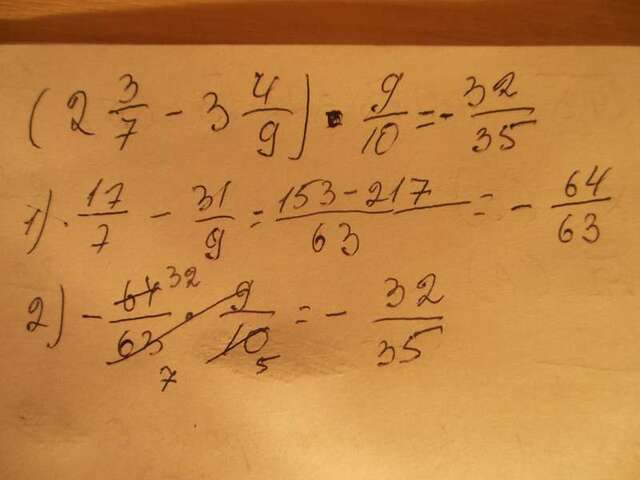 (2 3/7 - 3 4/9) · 9/10 = - 32/35
1) 17/7 - 31/9 = 153-217/63 = - 64/63
2) - 64 32/63 7 · 9/10 5 = - 32/35